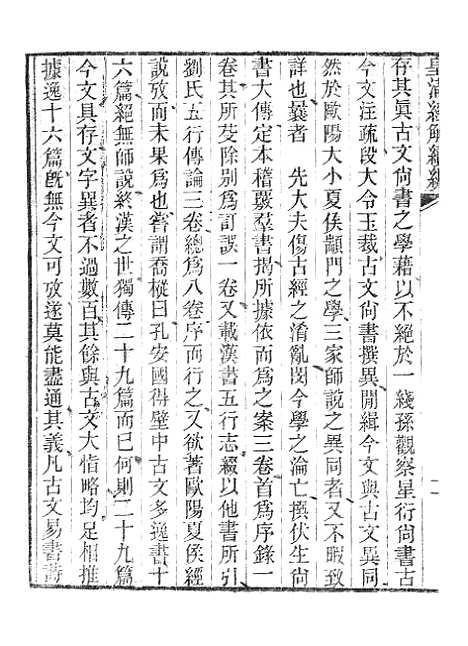 皇清經解續編
存其眞古文尙書之學藉以不絕於一綫孫觀察星衍尙書古
今文注疏段大令玉裁古文尙書撰異閒緝今文與古文異同
然於歐陽大小夏侯顓門之學三家師說之異同者又不暇致
詳也曩者　先大夫傷古經之淆亂閔今學之淪亡撰伏生尙
書大傳定本稽覈羣書揭所據依而爲之案三卷首爲序錄一
卷其所芟除别爲訂誤一卷又載漢書五行志綴以他書所引
劉氏五行傳論三卷總爲八卷序而行之又欲著歐陽夏侯經
說攷而未果爲也嘗謂喬樅曰孔安國得壁中古文多逸書十
六篇絕無師說終漢之世獨傳二十九篇而已何則二十九篇
今文具存文字異者不過數百其餘與古文大恉略均足相推
據逸十六篇旣無今文可攷遂莫能盡通其義凡古文易書詩